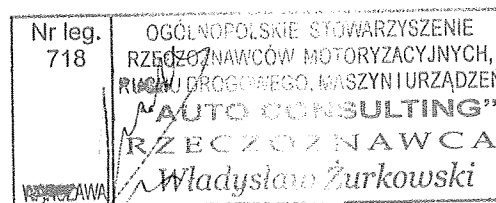 Nr leg.
718
WARSZAWA
OGÓLNOPOLSKIE STOWARZYSZENIE
RZECZOZNAWCÓW MOTORYZACYJNYCH,
RUCHU DROGOWEGO, MASZYN I URZĄDZEŃ
"AUTO CONSULTING"
RZECZOZNAWCA
Władysław Żurkowski